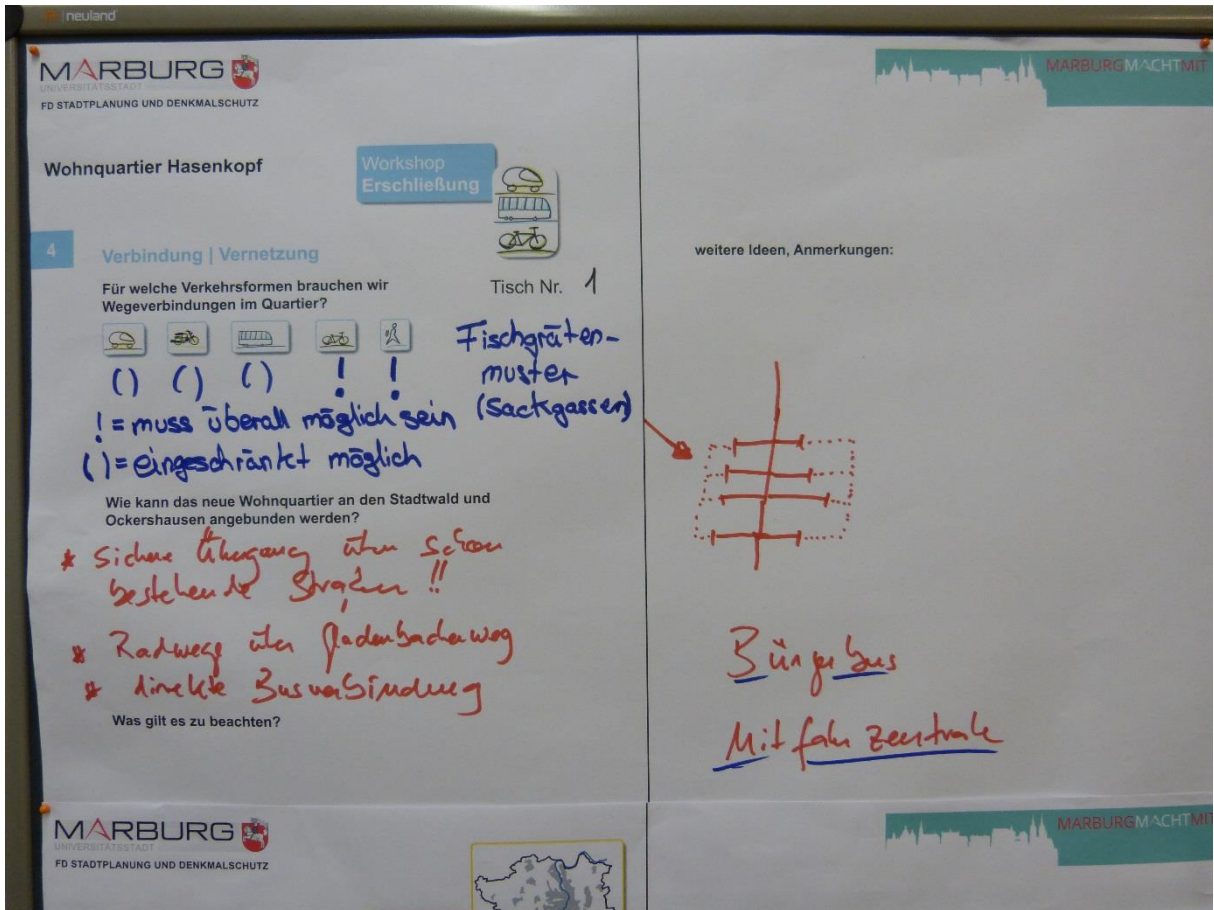 neuland
MARBURG
UNIVERSITÄTSSTADT
FD STADTPLANUNG UND DENKMALSCHUTZ
MARBURGMACHTMIT
Wohnquartier Hasenkopf
Workshop
Erschließung
4
Verbindung | Vernetzung
Für welche Verkehrsformen brauchen wir
Wegeverbindungen im Quartier?
Tisch Nr. 1
( ) ( ) ( ) ! !
! = muss überall möglich sein
( ) = eingeschränkt möglich
Fischgräten-
muster
(Sackgassen)
Wie kann das neue Wohnquartier an den Stadtwald und
Ockershausen angebunden werden?
* Sichere Übergang über schon
bestehende Straßen !!
* Radwege über Gladenbacherweg
* direkte Busverbindung
Was gilt es zu beachten?
weitere Ideen, Anmerkungen:
Bürgerbus
Mitfahrzentrale
MARBURG
UNIVERSITÄTSSTADT
FD STADTPLANUNG UND DENKMALSCHUTZ
MARBURGMACHTMIT